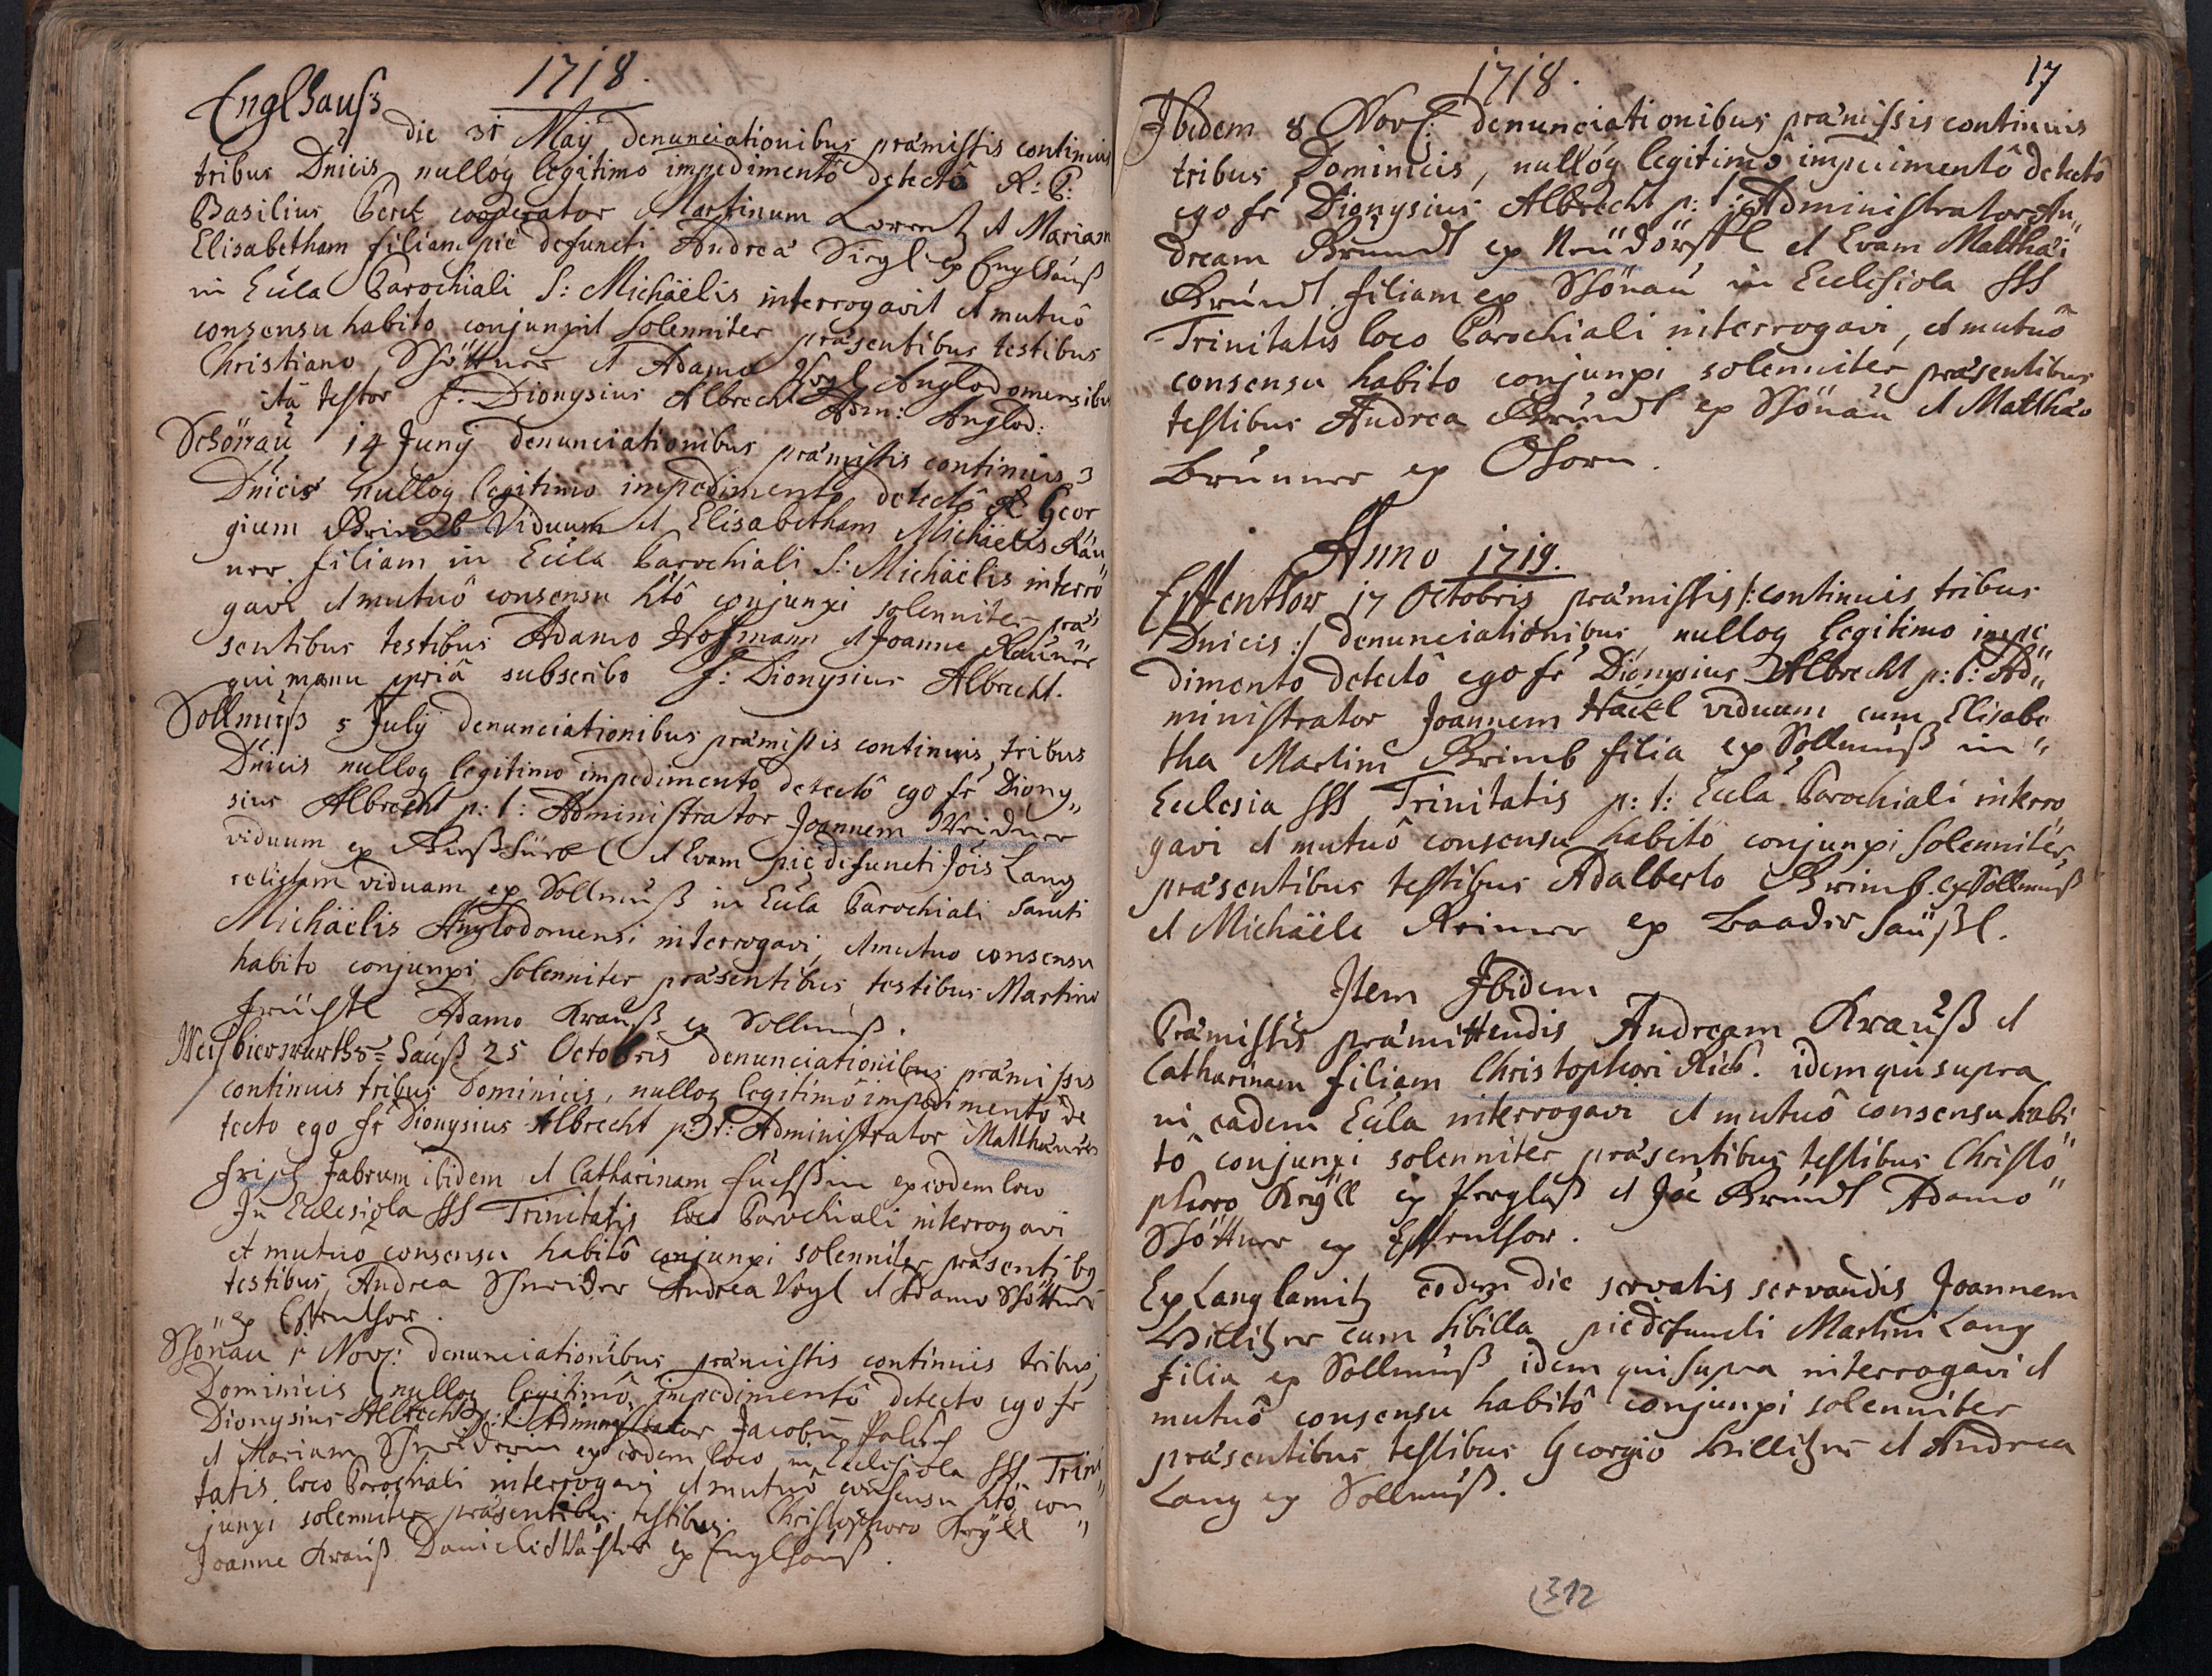 1718.
Englhauß
die 31 Maij denunciationibus præmissis continuis
tribus Dnicis nulloq legitimo impedimentô detectô R: P:
Basilius Berck cooperator Martinum Lorentz et Mariam
Elisabetham filiam piè defuncti Andreæ Siegl ex Englhauß
in Eccla Parochiali S: Michaëlis interrogavit et mutuô
consensu habito conjunxit solenniter præsentibus testibus
Christiano Schöttner et Adamo Vogl Anglodomensibus
ita testor f. Dionysius Albrecht Adm: Anglod:
Schönau 14 Junij denunciationibus præmissis continuis 3
Dnicis nulloq legitimo impedimento detectô Geor
gium Grimb Viduum et Elisabetham Michaëlis Rau
ner filiam in Eccla Parochiali S: Michaëlis interro
gavi et mutuô consensu htô conjunxi solenniter præ
sentibus testibus Adamo Hofmann et Joanne Rauner
qui manu ppriâ subscribo f: Dionysius Albrecht.
Sollmuß 5 Julij denunciationibus præmissis continuis tribus
Dnicis nulloq legitimo impedimento detectô ego fr Diony„
sius Albrecht p: t: Administrator Joannem Weidner
viduum ex et Evam piè defuncti Jois Lang
relictam viduam ex Sollmuß in Eccla Parochiali Sancti
Michaëlis Anglodomensi interrogavi, et mutuo consensu
habito conjunxi solenniter præsentibus testibus Martino
Adamo Krauß ex Sollmuß.
hauß 25 Octobris denunciationibus præmissis
continuis tribus Dominicis, nulloq legitimô impedimentô de
tecto ego fr Dionysius Albrecht p: t: Administrator Matthæum
Frisch Fabrum ibidem et Catharinam Fuchßin ex eodem loco
In Ecclesiola SSS Trinitatis loco Parochiali interrogavi
et mutuô consensu habitô conjunxi solenniter præsentibq
testibus Andrea Schneider Andrea Vogl et Adamo Schöttner
„ex Essenthor.
Schönau 1 Nov: denunciationibus præmissis continuis tribus
Dominicis nulloq legitimô impedimentô detecto ego fr
Dionysius Albrecht p: t: Administrator Jacobū
et Mariam Schneiderin ex eodem loco in Ecclesiola SSS Trini
tatis loco Parochiali interrogavi et mutuô consensu htô con„
junxi solenniter præsentibus testibus Christophoro Kryll
Joanne Krauß Daniele Wächter ex Englhauß.
1718.
17
Ibidem 8 Nov: denunciationibus præmissis continuis
tribus Dominicis, nulloq legitimô impedimentô detectô
ego fr Dionysius Albrecht p: t: Administrator An„
dream Gründl ex Neudörfl et Evam Matthæi
Gründl filiam ex Schönau in Ecclesiola SSS
Trinitatis loco Parochiali interrogavi, et mutuô
consensu habito conjunxi solenniter præsentibus
testibus Andrea Gründl ex Schönau et Matthæo
Brunner ex Ohorn.
Anno 1719.
Essenthor 17 Octobris præmissis /:continuis tribus
Dnicis:/ denunciationibus nulloq legitimo impe„
dimento detectô ego fr Dionysius Albrecht p: t: Ad„
ministrator Joannem Hackl viduum cum Elisabe
tha Martini Grimb filia ex Sollmuß in„
Ecclesia SSS Trinitatis p: t: Eccla Parochiali interro
gavi et mutuô consensu habito conjunxi solenniter,
præsentibus testibus Adalberto Grimb ex Sollmuß
et Michaële Reimer ex Baaderhäußl.
Item Ibidem
Præmissis præmittendis Andream Krauß et
Catharinam filiam Christophori Rieb. idem qui supra
in eadem Eccla interrogavi et mutuô consensu habi
tô conjunxi solenniter præsentibus testibus Christo„
phoro Kryll ex Perglaß et Joe Gründl Adamo„
Schöttner ex Essenthor.
Ex Langlamitz eodem die servatis servandis Joannem
Billitzer cum Sibilla piè defuncti Martini Lang
filia ex Sollmuß idem qui supra interrogavi et
mutuô consensu habitô conjunxi solenniter
præsentibus testibus Georgio Billitzer et Andrea
Lang ex Sollmuß.
312